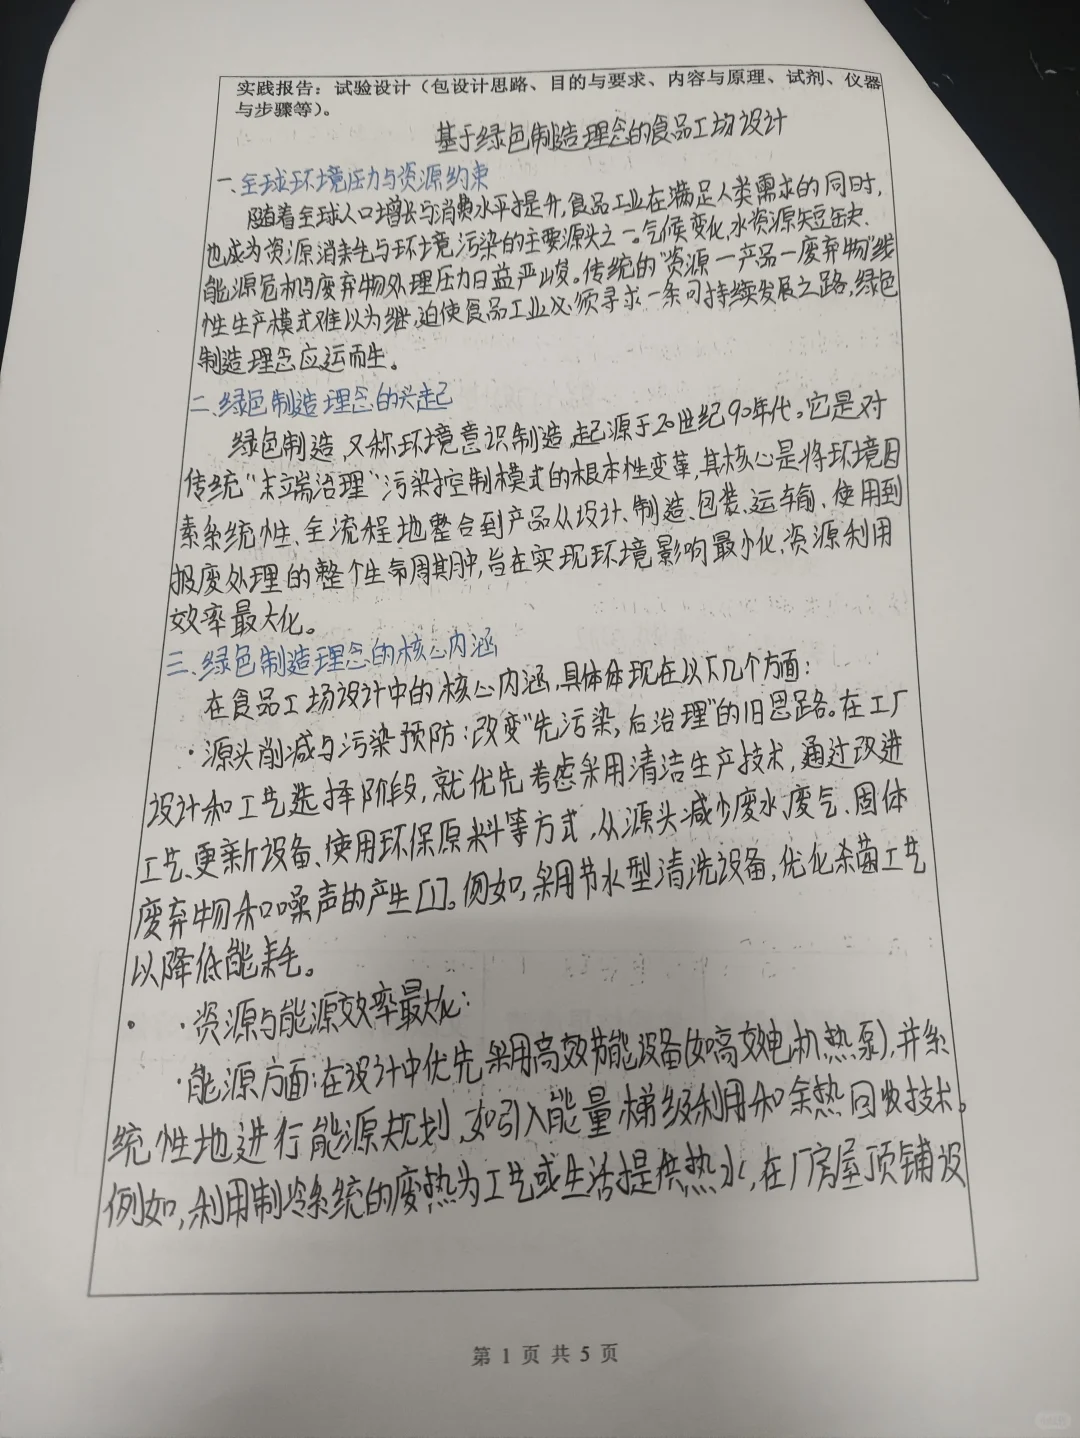 实践报告：试验设计（包设计思路、目的与要求、内容与原理、试剂、仪器
与步骤等）。
基于绿色制造理念的食品工场设计
一、全球环境压力与资源约束
随着全球人口增长与消费水平提升,食品工业在满足人类需求的同时,
也成为资源消耗与环境污染的主要源头之一。气候变化,水资源短缺、
能源危机与废弃物处理压力日益严峻。传统的"资源一产品一废弃物"线
性生产模式难以为继,迫使食品工业必须寻求一条可持续发展之路,绿色
制造理念应运而生。
二、绿色制造理念的兴起
绿色制造,又称环境意识制造,起源于20世纪90年代。它是对
传统"末端治理"污染控制模式的根本性变革,其核心是将环境因
素系统性、全流程地整合到产品从设计、制造、包装、运输、使用到
报废处理的整个生命周期中,旨在实现环境影响最小化、资源利用
效率最大化。
三、绿色制造理念的核心内涵
在食品工场设计中的核心内涵,具体体现在以下几个方面:
·源头削减与污染预防:改变"先污染,后治理"的旧思路。在工厂
设计和工艺选择阶段,就优先考虑采用清洁生产技术,通过改进
工艺、更新设备、使用环保原料等方式,从源头减少废水、废气、固体
废弃物和噪声的产生[1]。例如,采用节水型清洗设备,优化杀菌工艺
以降低能耗。
·资源与能源效率最大化:
·能源方面:在设计中优先采用高效节能设备(如高效电机,热泵),并系
统性地进行能源规划,如引入能量梯级利用和余热回收技术。
例如,利用制冷系统的废热为工艺或生活提供热水,在厂房屋顶铺设
第 1 页 共 5 页